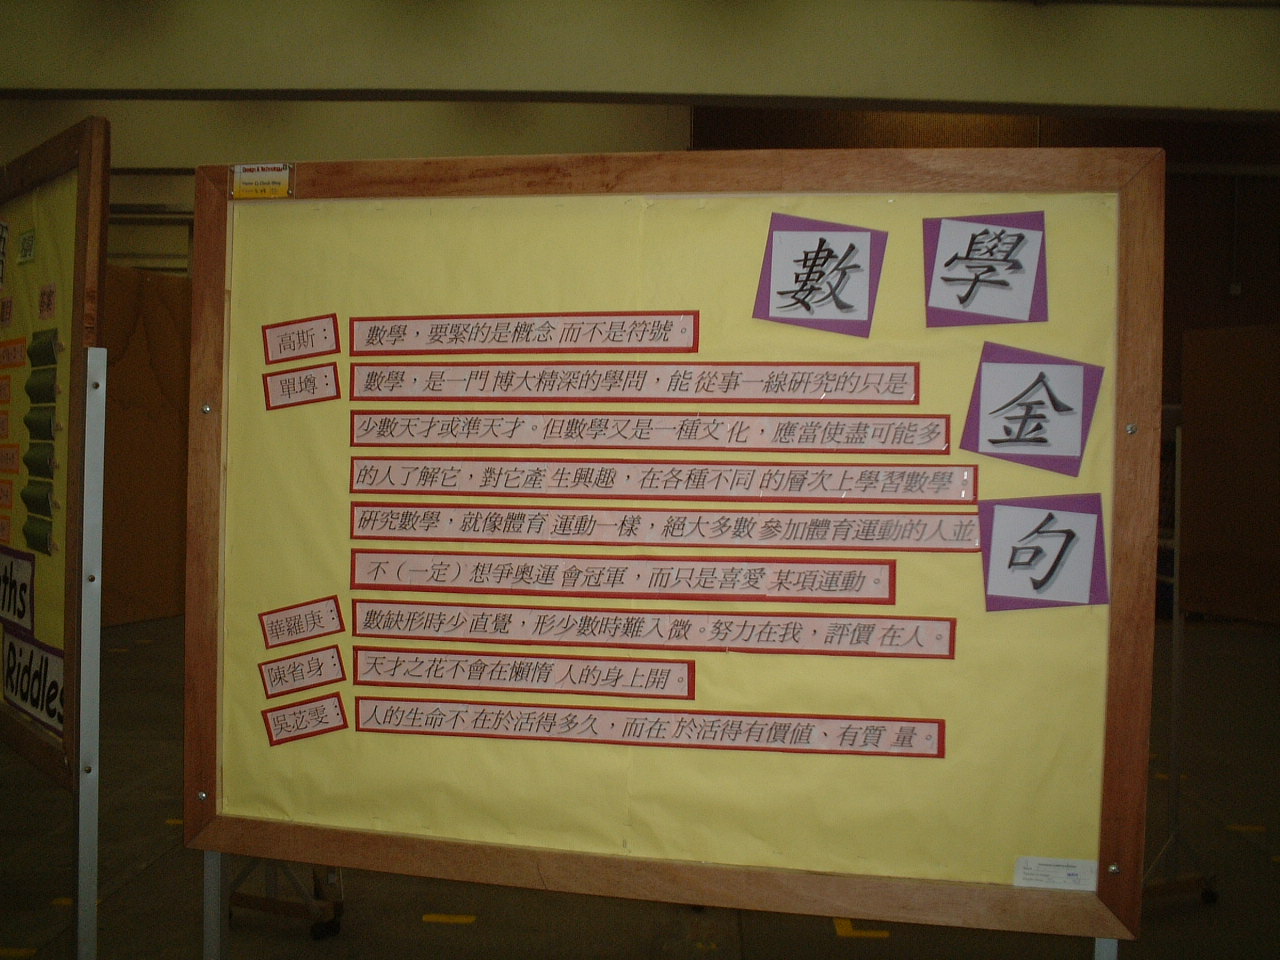 Design & Technology
數學
金
句
高斯：
數學，要緊的是概念而不是符號。
單墫：
數學，是一門博大精深的學問，能從事一線研究的只是
少數天才或準天才。但數學又是一種文化，應當使盡可能多
的人了解它，對它產生興趣，在各種不同的層次上學習數學。
研究數學，就像體育運動一樣，絕大多數參加體育運動的人並
不（一定）想爭奧運會冠軍，而只是喜愛某項運動。
華羅庚：
數缺形時少直覺，形少數時難入微。努力在我，評價在人。
陳省身：
天才之花不會在懶惰人的身上開。
吳苾雯：
人的生命不在於活得多久，而在於活得有價值、有質量。
Riddles